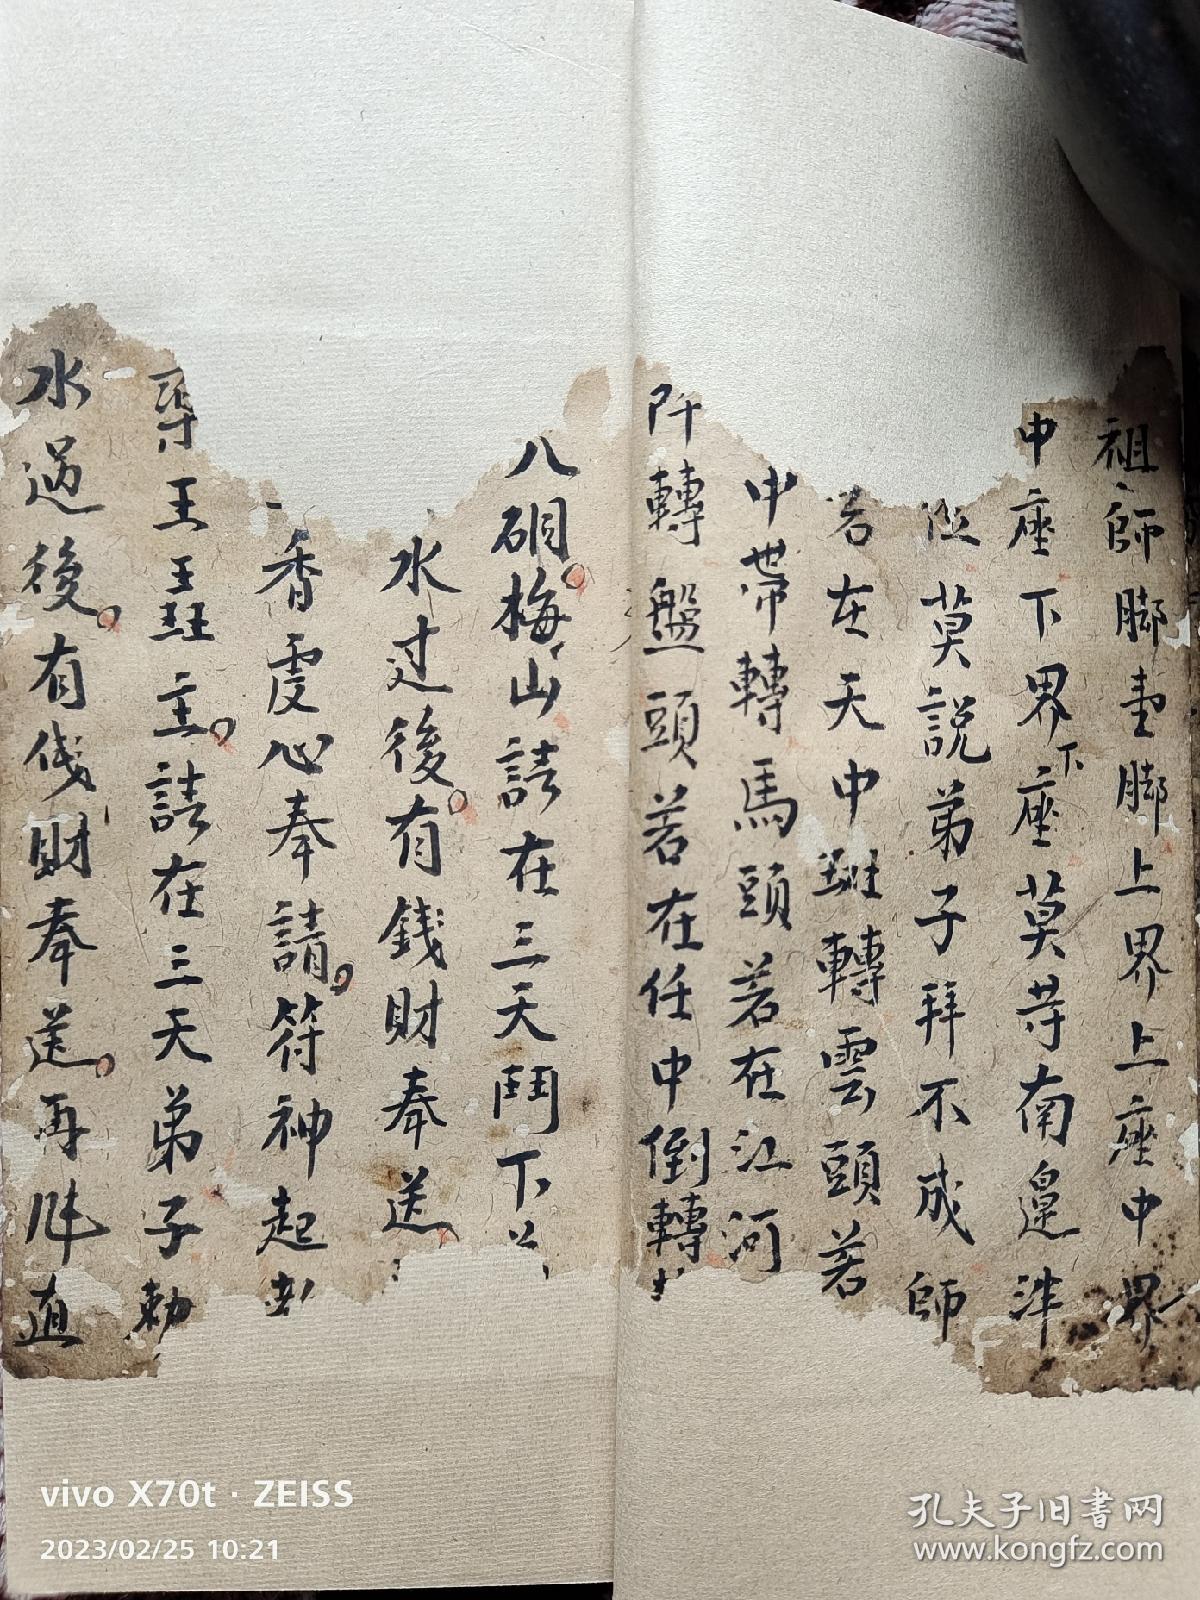 祖師脚車脚上界上座中界
中座下界下座莫等南邊洋
莫說弟子拜不成師
若在天中斑轉雲頭若
中帶轉馬頭若在江河
阡轉盤頭若在任中倒轉
八硐梅山請在三天門下
水过後有錢財奉送
香虔心奉請符神起
王主請在三天弟子勅
水過後有伐財奉送再
vivo X70t · ZEISS
2023/02/25 10:21
孔夫子旧书网
www.kongfz.com